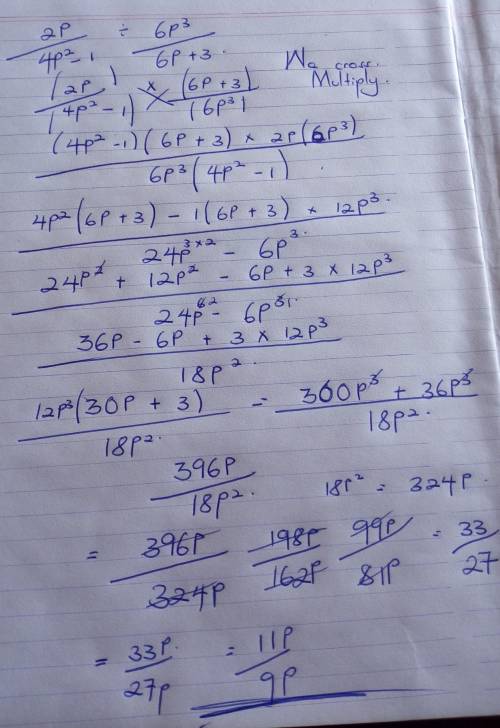 2P/4P²-1 ÷ 6P³/6P+3.
We cross.
(2P)/(4P²-1) × (6P+3)/(6P³) Multiply.
(4P²-1)(6P+3) × 2P(6P³)/6P³(4P²-1)
4P²(6P+3) - 1(6P+3) × 12P³./24P³ˣ² - 6P³.
24P² + 12P² - 6P + 3 × 12P³/24P⁶² - 6P³¹.
36P - 6P + 3 × 12P³/18P².
12P³(30P + 3)/18P². = 360P³ + 36P³/18P².
396P/18P². 18P² = 324P.
= 396P/324P 198P/162P 99P/81P = 33/27
= 33P./27P = 11P/9P